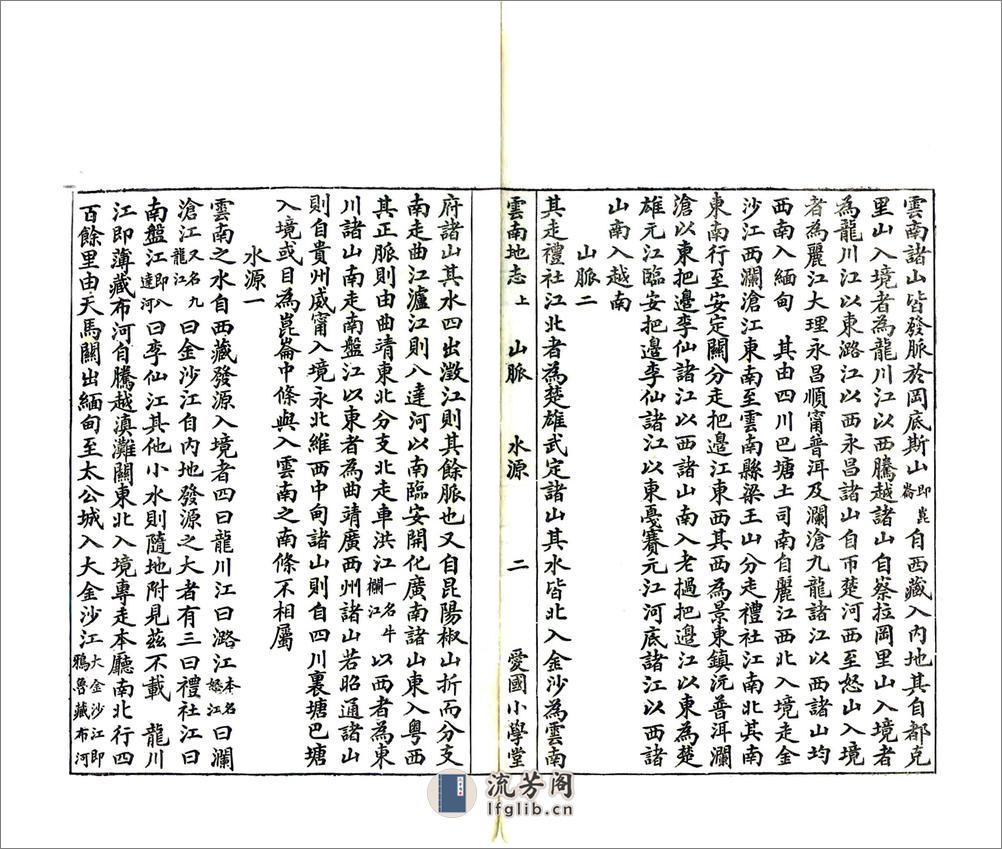 雲南諸山皆發脈於岡底斯山即崑崙自西藏入內地其自都克
里山入境者為龍川江以西騰越諸山自察拉岡里山入境者
為龍川江以東潞江以西永昌諸山自帀楚河西至怒山入境
者為麗江大理永昌順甯普洱及瀾滄九龍諸江以西諸山均
西南入緬甸　其由四川巴塘土司南自麗江西北入境走金
沙江西瀾滄江東南至雲南縣梁王山分走禮社江南北其南
東南行至安定關分走把邊江東西其西為景東鎮沅普洱瀾
滄以東把邊李仙諸江以西諸山南入老撾把邊江以東為楚
雄元江臨安把邊李仙諸江以東戛賽元江河底諸江以西諸
山南入越南
山脈二
其走禮社江北者為楚雄武定諸山其水皆北入金沙為雲南
雲南地志上　山脈　水源　二　愛國小學堂
府諸山其水四出澂江則其餘脈也又自昆陽椒山折而分支
南走曲江瀘江則八達河以南臨安開化廣南諸山東入粵西
其正脈則由曲靖東北分支北走車洪江一名牛欄江以西者為東
川諸山南走南盤江以東者為曲靖廣西州諸山若昭通諸山
則自貴州威甯入境永北維西中甸諸山則自四川裏塘巴塘
入境或目為崑崙中條與入雲南之南條不相屬
水源一
雲南之水自西藏發源入境者四曰龍川江曰潞江本名怒江曰瀾
滄江又名九龍江曰金沙江自內地發源之大者有三曰禮社江曰
南盤江即八達河曰李仙江其他小水則隨地附見茲不載　龍川
江即薄藏布河自騰越滇灘關東北入境專走本廳南北行四
百餘里由天馬關出緬甸至太公城入大金沙江大金沙江即鴉魯藏布河
流芳阁
lfglib.cn